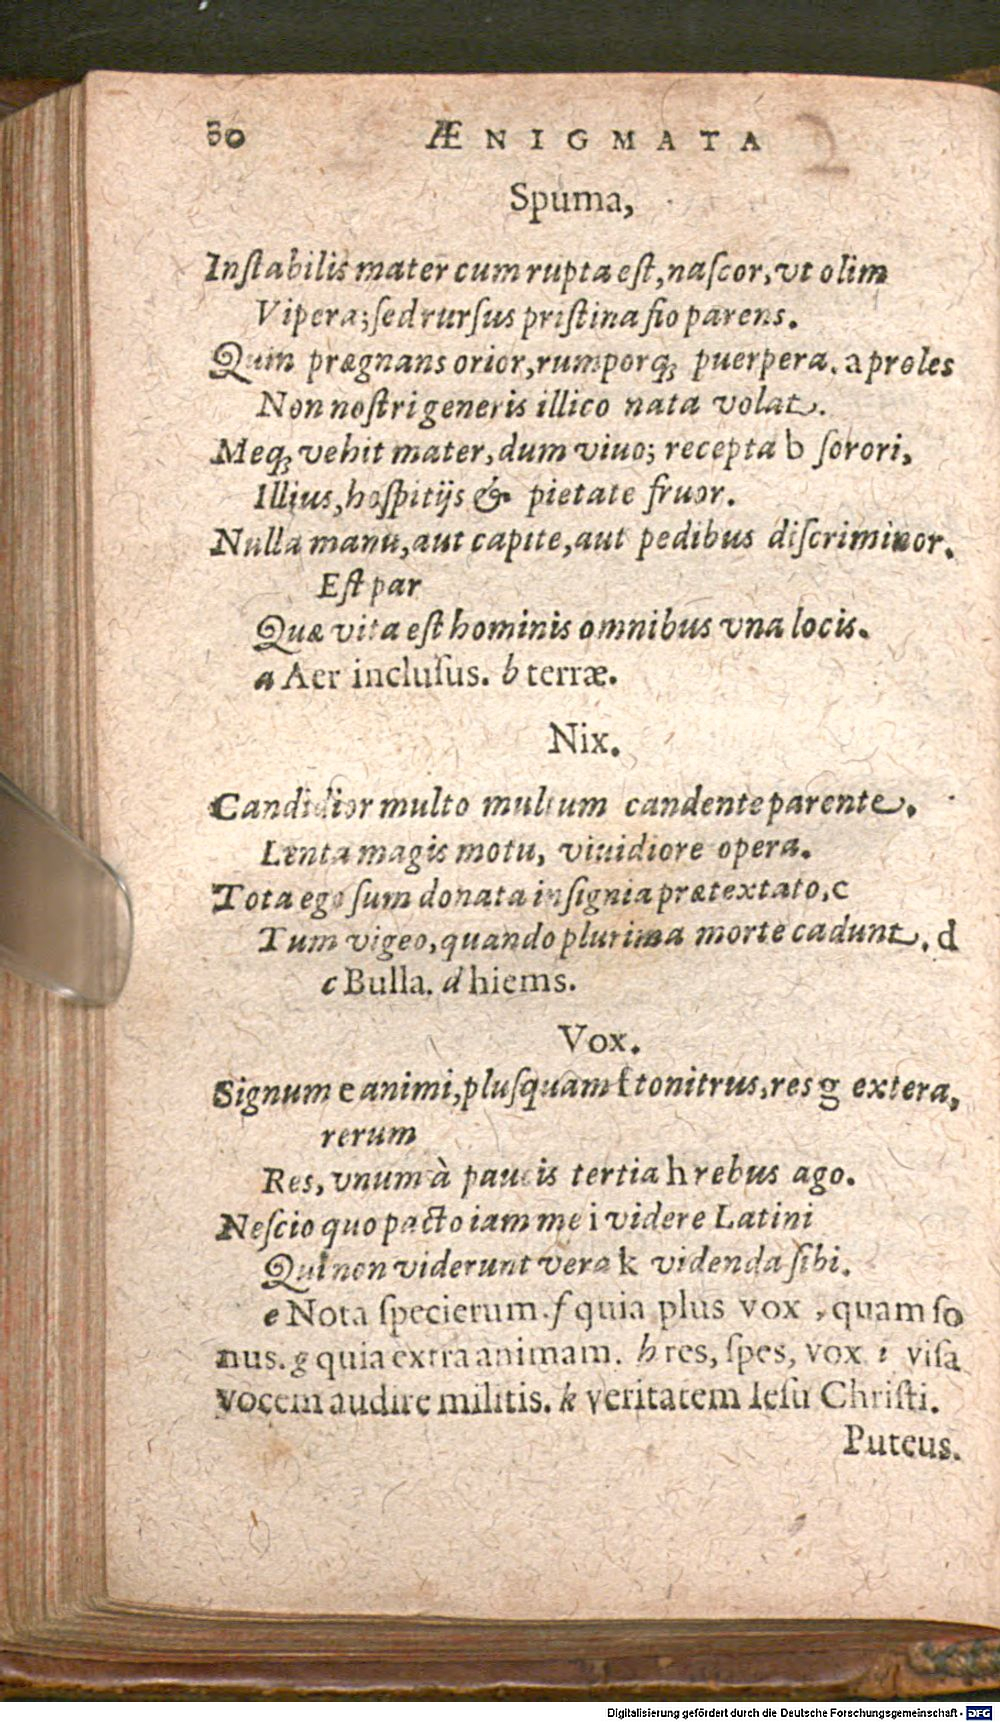 80 ÆNIGMATA
Spuma,
Inſtabilis mater cum rupta eſt, naſcor, vt olim
Vipera; ſed rurſus priſtina fio parens.
Quin prægnans orior, rumporq; puerpera. a proles
Non noſtri generis illico nata volat.
Meq; vehit mater, dum viuo; recepta b ſorori,
Illius, hoſpitijs & pietate fruor.
Nulla manu, aut capite, aut pedibus diſcriminor.
Eſt par
Quæ vita eſt hominis omnibus vna locis.
a Aer incluſus. b terræ.
Nix.
Candidior multo multum candente parente.
Lenta magis motu, viuidiore opera.
Tota ego ſum donata inſignia prætextato, c
Tum vigeo, quando plurima morte cadunt. d
c Bulla. d hiems.
Vox.
Signum e animi, pluſquam f tonitrus, res g extera,
rerum
Res, vnum à paucis tertia h rebus ago.
Neſcio quo pacto iam me i videre Latini
Qui non viderunt vera k videnda ſibi.
e Nota ſpecierum. f quia plus vox, quam ſo
nus. g quia extra animam. h res, ſpes, vox i viſa
vocem audire militis. k veritatem Ieſu Chriſti.
Puteus.
Digitalisierung gefördert durch die Deutsche Forschungsgemeinschaft - DFG